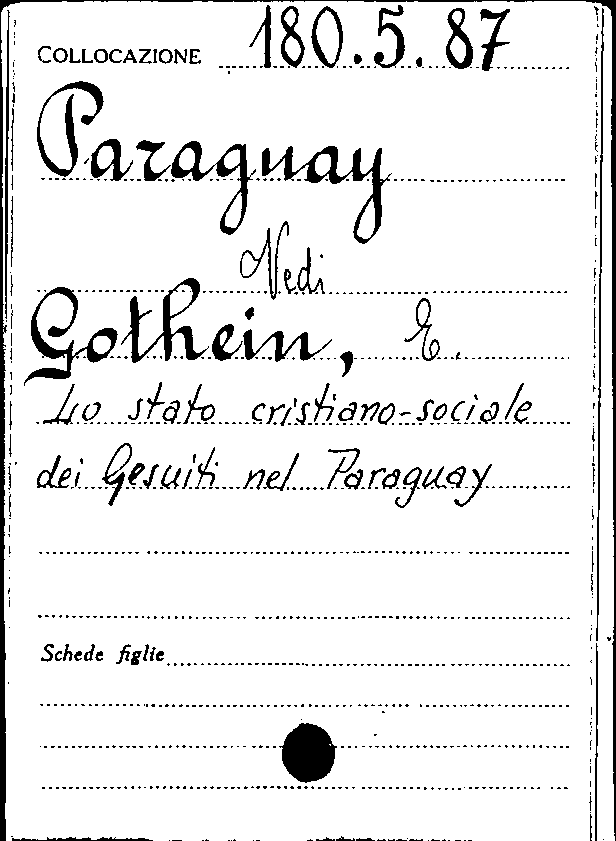 COLLOCAZIONE 180.5.87
Paraguay
Vedi
Gothein, E.
Lo stato cristiano-sociale
dei Gesuiti nel Paraguay
Schede figlie